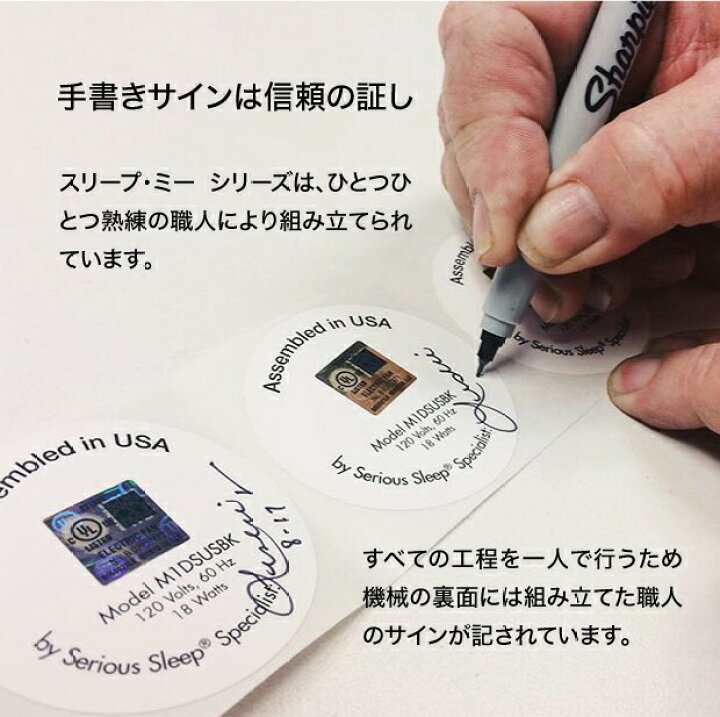 手書きサインは信頼の証し
スリープ・ミー シリーズは、ひとつひ
とつ熟練の職人により組み立てられ
ています。
Sharpie
Assembled in USA
UL
LISTED
Model M1DSUSBK
120 Volts, 60 Hz
18 Watts
by Serious Sleep® Specialist
Assembled in USA
UL
LISTED
ELECTRIC FAN
Model M1DSUSBK
120 Volts, 60 Hz
18 Watts
by Serious Sleep® Specialist
8-17
すべての工程を一人で行うため
機械の裏面には組み立てた職人
のサインが記されています。